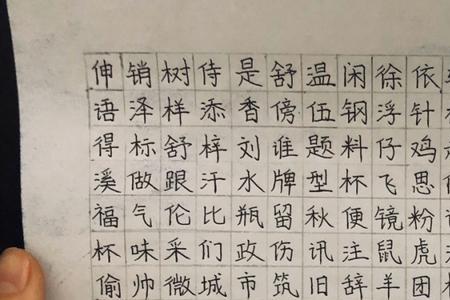 伸销树侍是舒温闲徐依
语泽样添香傍伍钢浮针
得标舒梓刘谁题料仔鸡
溪做跟汗水牌型杯飞思
福气伦比瓶留秋便镜粉
杯味采们政伤讯注鼠虎
偷帅微城市筑旧辞羊团